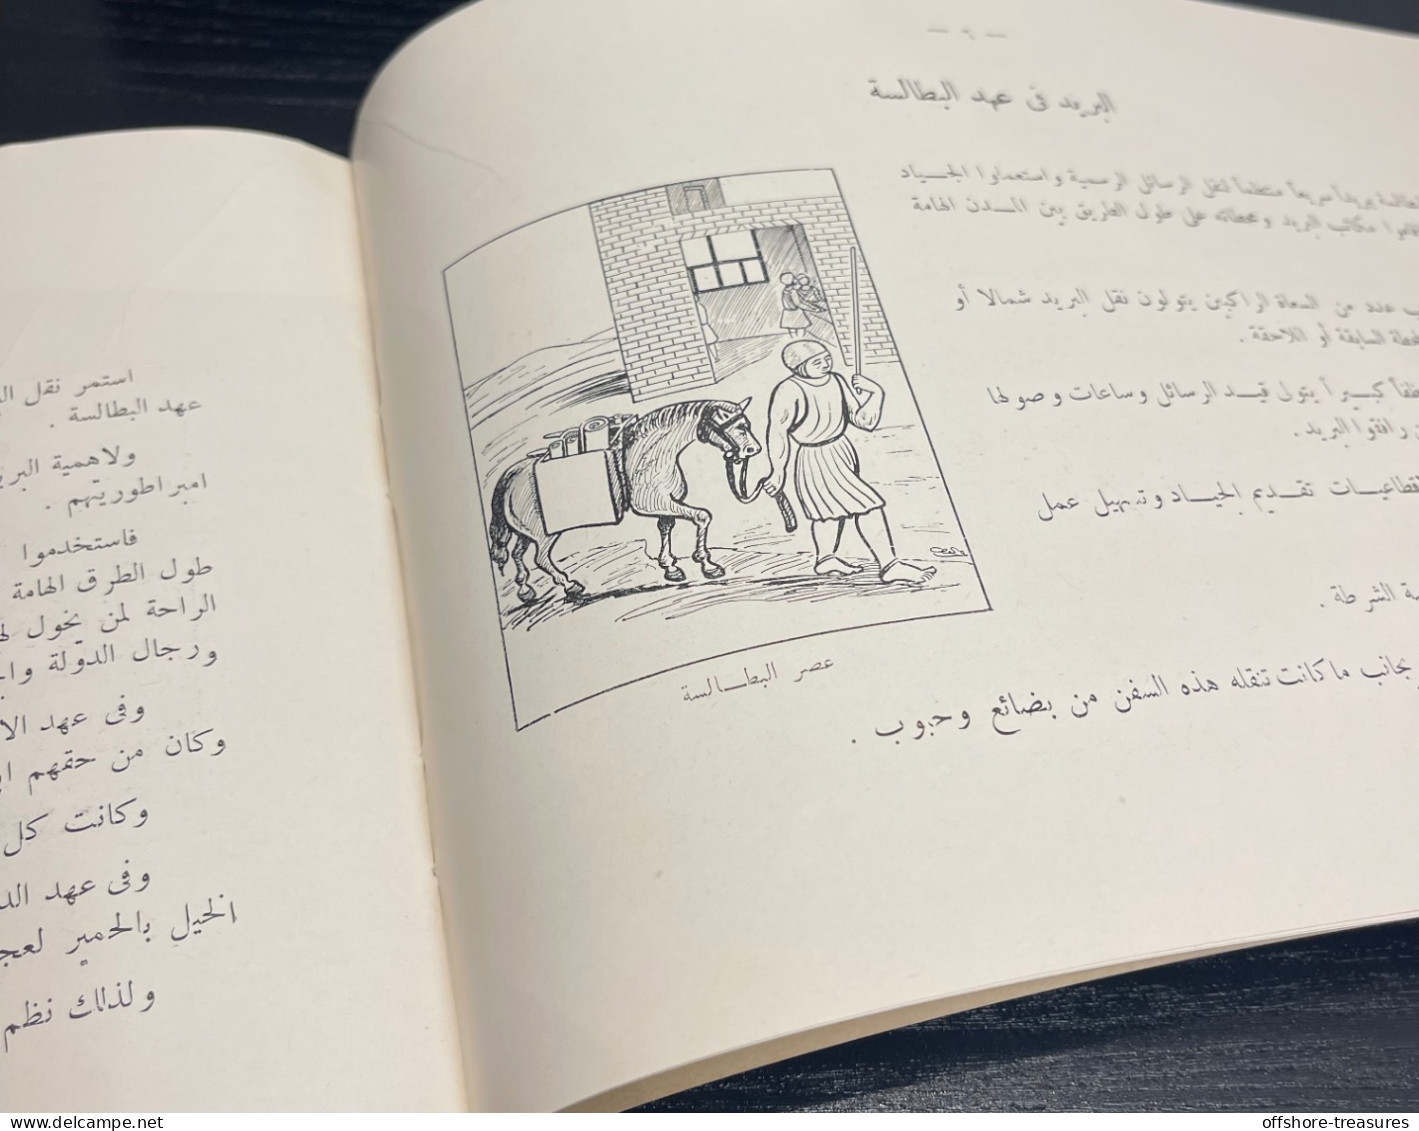 — ٩ —
البريد فى عهد البطالسة
بريداً سريعاً منتظماً لنقل الرسائل الرسمية واستعملوا الجياد
مكاتب البريد ومحطاته على طول الطريق بين المدن الهامة
عدد من السعاة الراكبين يتولون نقل البريد شمالا أو
السابقة أو اللاحقة .
كبيراً يتولى قيد الرسائل وساعات وصولها
رافقوا البريد .
تقديم الجياد وتسهيل عمل
الشرطة .
بجانب ما كانت تنقله هذه السفن من بضائع وحبوب .
عصر البطالسة
استمر نقل
عهد البطالسة .
ولاهمية البريد
امبراطوريتهم .
فاستخدموا
طول الطرق الهامة
الراحة لمن يخول
ورجال الدولة
وفى عهد
وكان من حقهم
وكانت كل
وفى عهد
الخيل بالحمير
ولذلك نظم
offshore-treasures